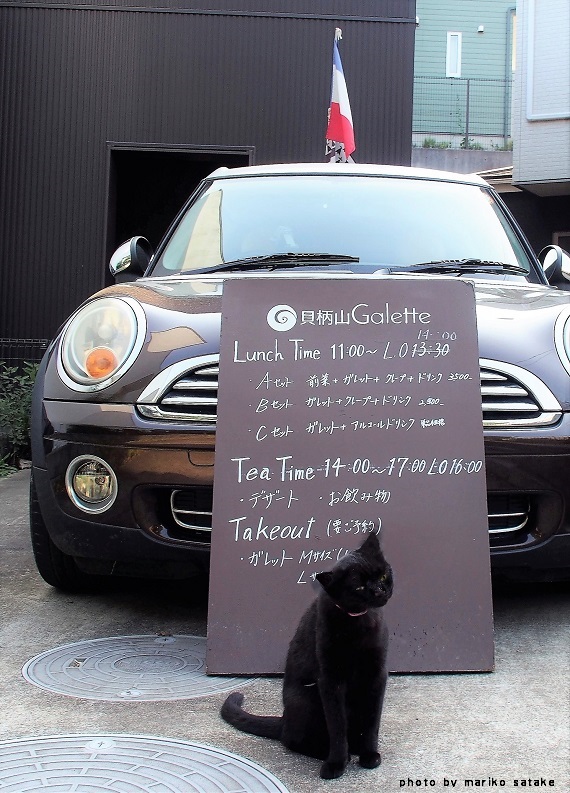 貝柄山Galette
14:00
Lunch Time 11:00～ L.O 13:30
・Aセット 前菜+ガレット+クレープ+ドリンク 3,500-
・Bセット ガレット+クレープ+ドリンク 2,800
・Cセット ガレット+アルコールドリンク
Tea Time 14:00～17:00 LO16:00
・デザート ・お飲み物
Takeout (要ご予約)
・ガレット Mサイズ
Lサ
photo by mariko satake